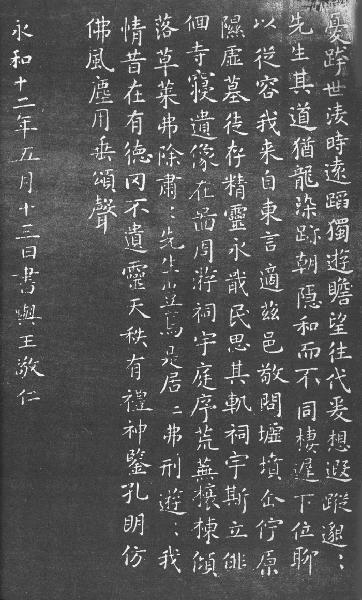 憂跨世淩時遠蹈獨遊瞻望往代爰想遐蹤邈〻
先生其道猶龍染跡朝隱和而不同棲遲下位聊
以從容我来自東言適茲邑敬問墟墳企佇原
隰虛墓徒存精靈永戢民思其軌祠宇斯立俳
佪寺寑遺像在啚周游祠宇庭序荒蕪榱棟傾
落草萊弗除肅〻先生豈焉是居〻弗刑遊〻我
情昔在有德罔不遺靈天秩有禮神鑒孔明仿
佛風塵用垂頌聲
永和十二年五月十三日書與王敬仁